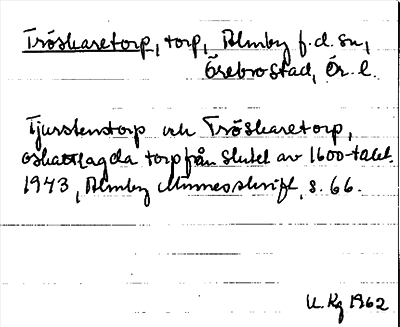 Tröskaretorp, torp, Almby f.d. sn,
Örebro stad, Ör. l.
Tjusstenstorp och Tröskaretorp,
oskattlagda torp från slutet av 1600-talet.
1943, Almby Minnesskrift, s. 66.
U. Kg 1962